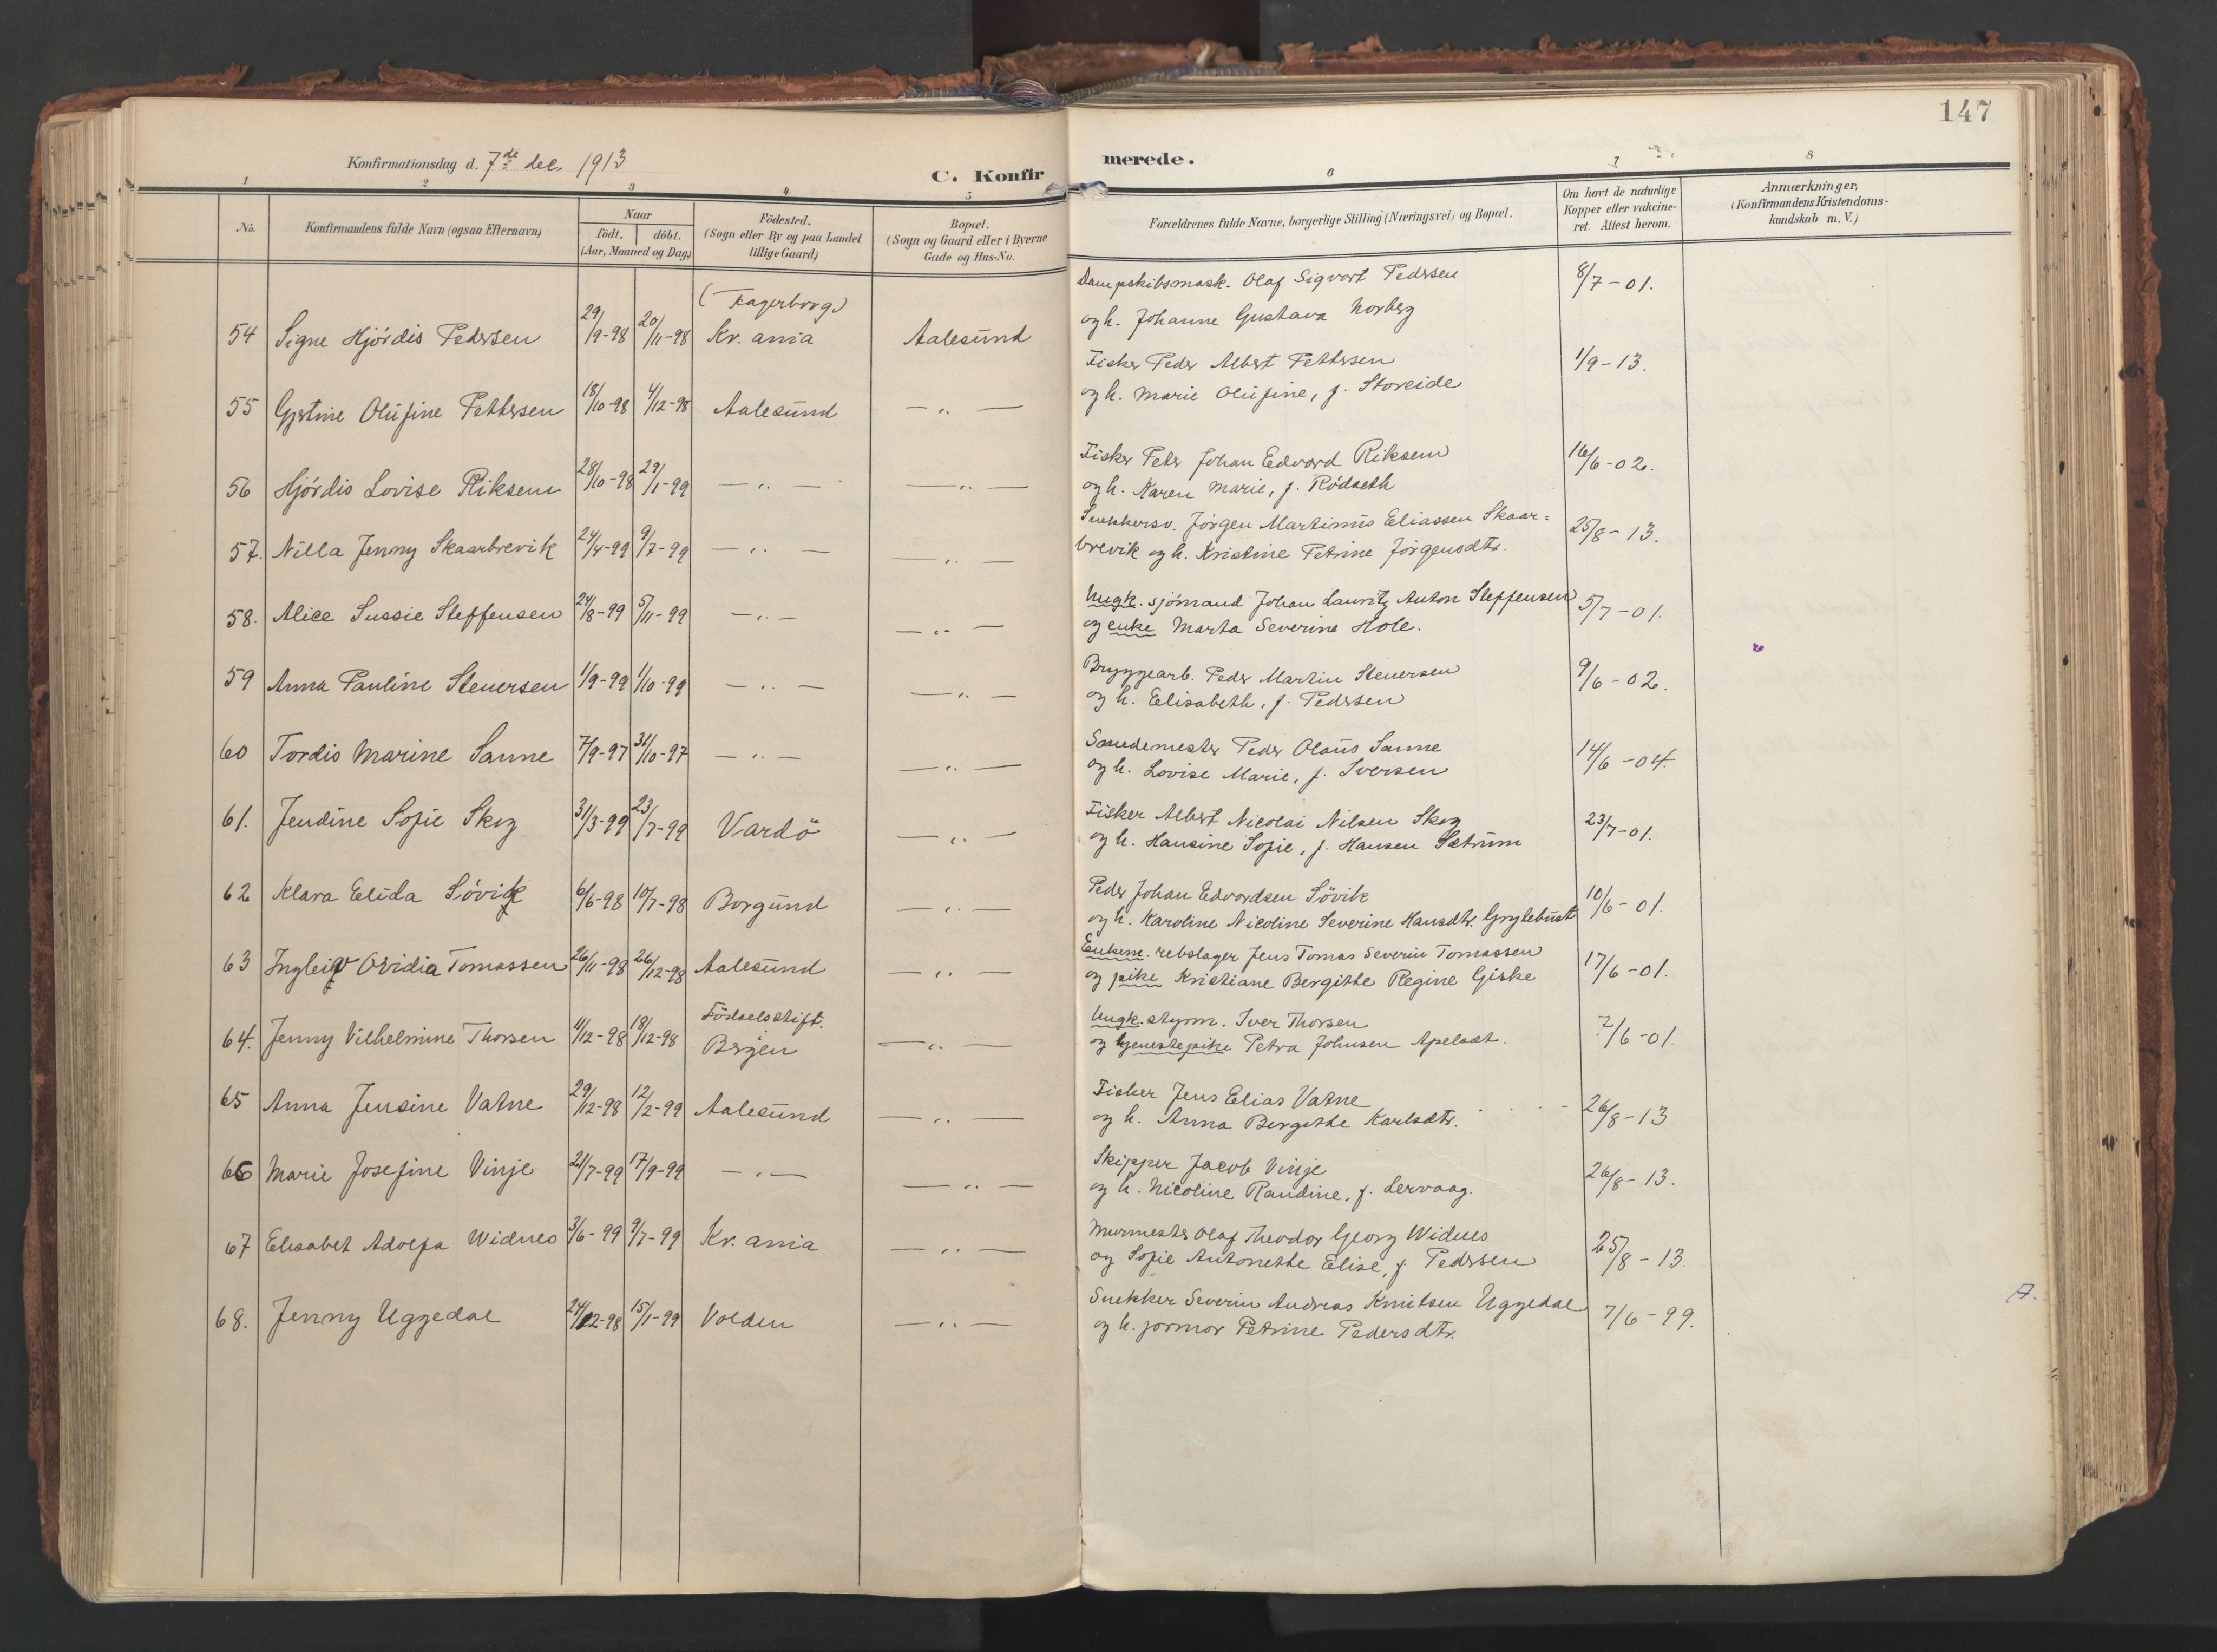 147
Konfirmationsdag d. 7de dec. 1913
C. Konfirmerede.
1 2 3 4 5 6 7 8
No.
Konfirmandens fulde Navn (ogsaa Efternavn)
Naar
født. døbt.
(Aar, Maaned og Dag)
Födested.
(Sogn eller By og paa Landet
tillige Gaard)
Bopæl.
(Sogn og Gaard eller i Byerne
Gade og Hus-No.
Forældrenes fulde Navne, borgerlige Stilling (Næringsvei) og Bopæl.
Om havt de naturlige
Kopper eller vakcine-
ret. Attest herom.
Anmærkninger,
(Konfirmandens Kristendoms-
kundskab m. V.)
(Fagerborg)
54 Signe Hjørdis Pedersen 29/9-98 20/11-98 Kr. ania Aalesund
Dampskibsmask. Olaf Sigvart Pedersen 8/7-01.
og h. Johanne Gustava Norberg
55 Gjertine Olufine Pettersen 18/10-98 4/12-98 Aalesund — ,, —
Fisker Peder Albert Pettersen 1/9-13.
og h. Marie Olufine, f. Storeide
56 Hjørdis Lovise Riksem 28/10-98 29/1-99 — ,, — — ,, —
Fisker Peter Johan Edvard Riksem 16/6-02.
og h. Karen Marie, f. Rødseth
57. Nilla Jenny Skaarbrevik 24/4-99 9/7-99 — ,, — — ,, —
Snekkersv. Jørgen Martinus Eliassen Skaar= 25/8-13.
brevik og h. Kristine Petrine Jørgensdtr.
58. Alice Sussie Steffensen 24/8-99 5/11-99 — ,, — — ,, —
Ungk. sjømand Johan Lauritz Anton Steffensen 5/7-01.
og enke Marta Severine Hole.
59 Anna Pauline Stenersen 1/9-99 1/10-99 — ,, — — ,, —
Bryggearb. Peder Martin Stenersen 9/6-02.
og h. Elisabeth, f. Pedersen
60 Tordis Marine Sanne 7/9-97 31/10-97 — ,, — — ,, —
Peder Olaus Sanne 14/6-04.
og h. Lovise Marie, f. Iversen
61. Jendine Sofie Skog 31/3-99 23/7-99 Vardö — ,, —
Fisker Albert Nicolai Nilsen Skog 23/7-01.
og h. Hansine Sofie, f. Hansen Sætrum
62 Klara Elida Søvik 6/6-98 10/7-98 Borgund — ,, —
Peder Johan Edvardsen Søvik 10/6-01.
og h. Karoline Nicoline Severine Hansdtr. Grytebust
63 Ingleiv Ovidia Tomassen 26/11-98 26/12-98 Aalesund — ,, —
Enkem. rebslager Jens Tomas Severin Tomassen 17/6-01.
og pike Kristiane Bergitte Regine Giske
Fødselsstift.
64. Jenny Vilhelmine Thorsen 11/12-98 18/12-98 Bergen — ,, —
Ungk. styrm. Iver Thorsen 7/6-01.
og tjenestepike Petra Johnsen Apelsæt.
65 Anna Jensine Vatne 29/12-98 12/2-99 Aalesund — ,, —
Fisker Jens Elias Vatne 26/8-13
og h. Anna Bergithe Karlsdtr.
66 Marie Josefine Vinje 21/7-99 17/9-99 — ,, — — ,, —
Skipper Jacob Vinje 26/8-13.
og h. Nicoline Randine, f. Lervaag.
67 Elisabet Adolfa Widnes 3/6-99 9/7-99 Kr. ania — ,, —
Murmester Olaf Theodor Georg Widnes 25/8-13.
og Sofie Antonette Elise, f. Pedersen
68. Jenny Uggedal 24/12-98 15/1-99 Volden — ,, —
Snekker Severin Andreas Knutsen Uggedal 7/6-99.
og h. formor Petrine Pedersdtr.
A.